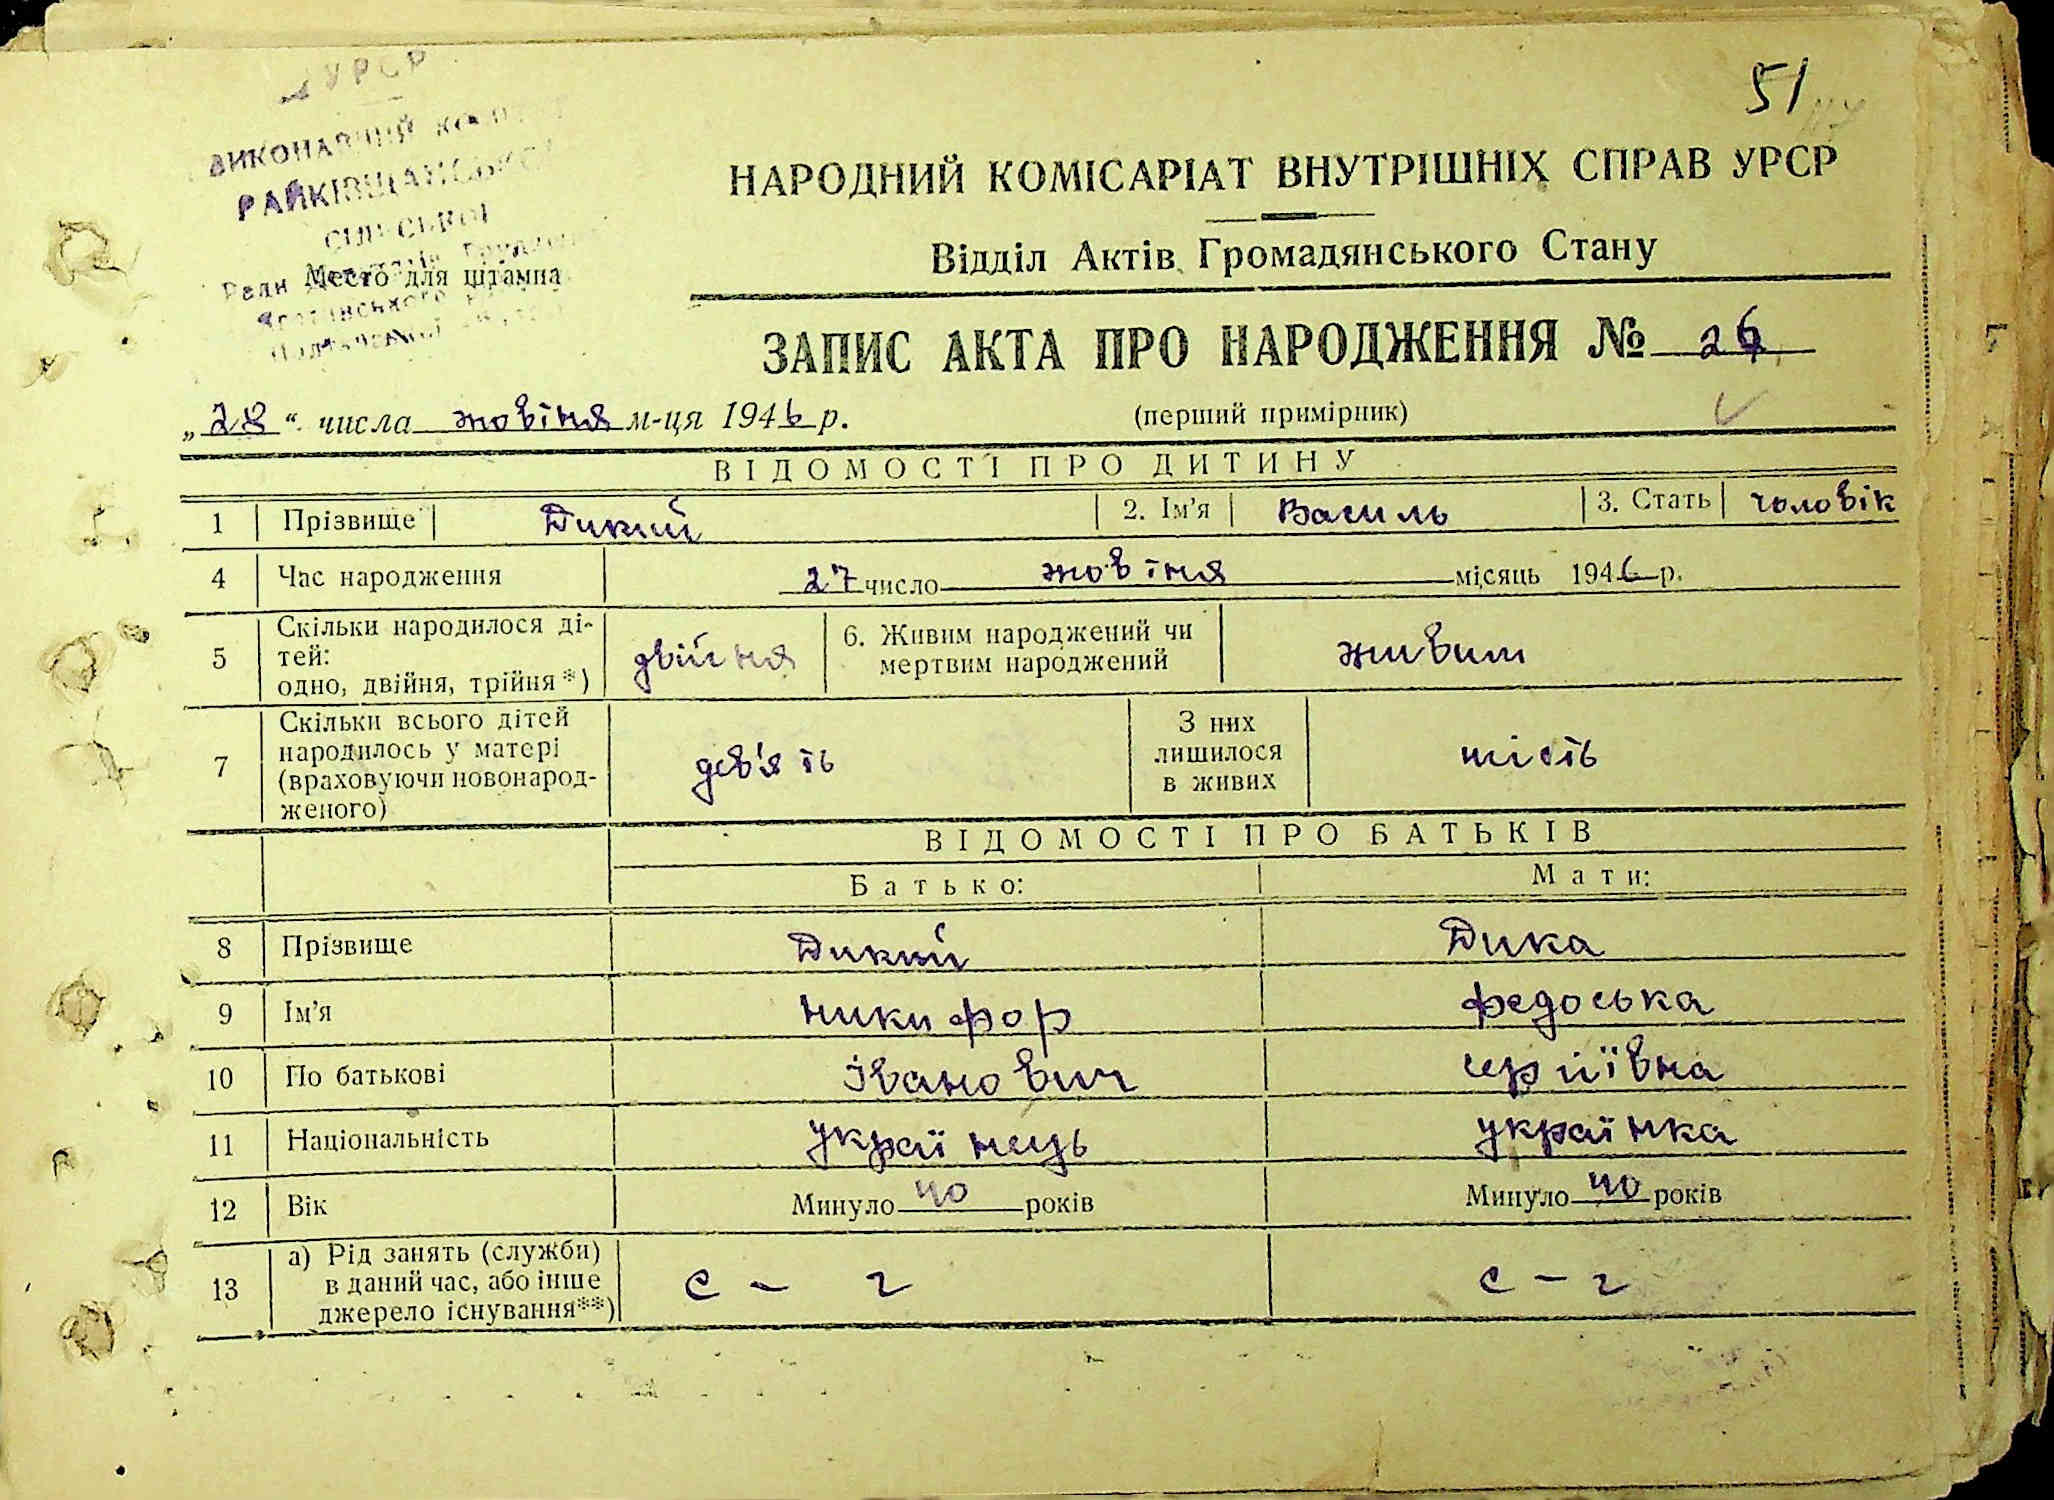 51
УРСР
ВИКОНАВЧИЙ КОМІТЕТ
РАЙКІВЩАНСЬКОЇ
СІЛЬСЬКОЇ
Ради Депутатів Трудящих
Полтавської
Место для штампа
НАРОДНИЙ КОМІСАРІАТ ВНУТРІШНІХ СПРАВ УРСР
Відділ Актів Громадянського Стану
ЗАПИС АКТА ПРО НАРОДЖЕННЯ № 26
„28“ числа жовтня м-ця 1946 р. (перший примірник)
ВІДОМОСТІ ПРО ДИТИНУ
1 Прізвище Дикий 2. Ім'я Василь 3. Стать чоловік
4 Час народження 27 число жовтня місяць 1946 р.
5 Скільки народилося ді-
тей:
одно, двійня, трійня*) двійня 6. Живим народжений чи
мертвим народжений живим
7 Скільки всього дітей
народилось у матері
(враховуючи новонарод-
женого) дев'ять З них
лишилося
в живих шість
ВІДОМОСТІ ПРО БАТЬКІВ
Батько: Мати:
8 Прізвище Дикий Дика
9 Ім'я Никифор Федоська
10 По батькові Іванович Сергіївна
11 Національність українець українка
12 Вік Минуло 40 років Минуло 40 років
13 а) Рід занять (служби)
в даний час, або інше
джерело існування**) с - г с - г